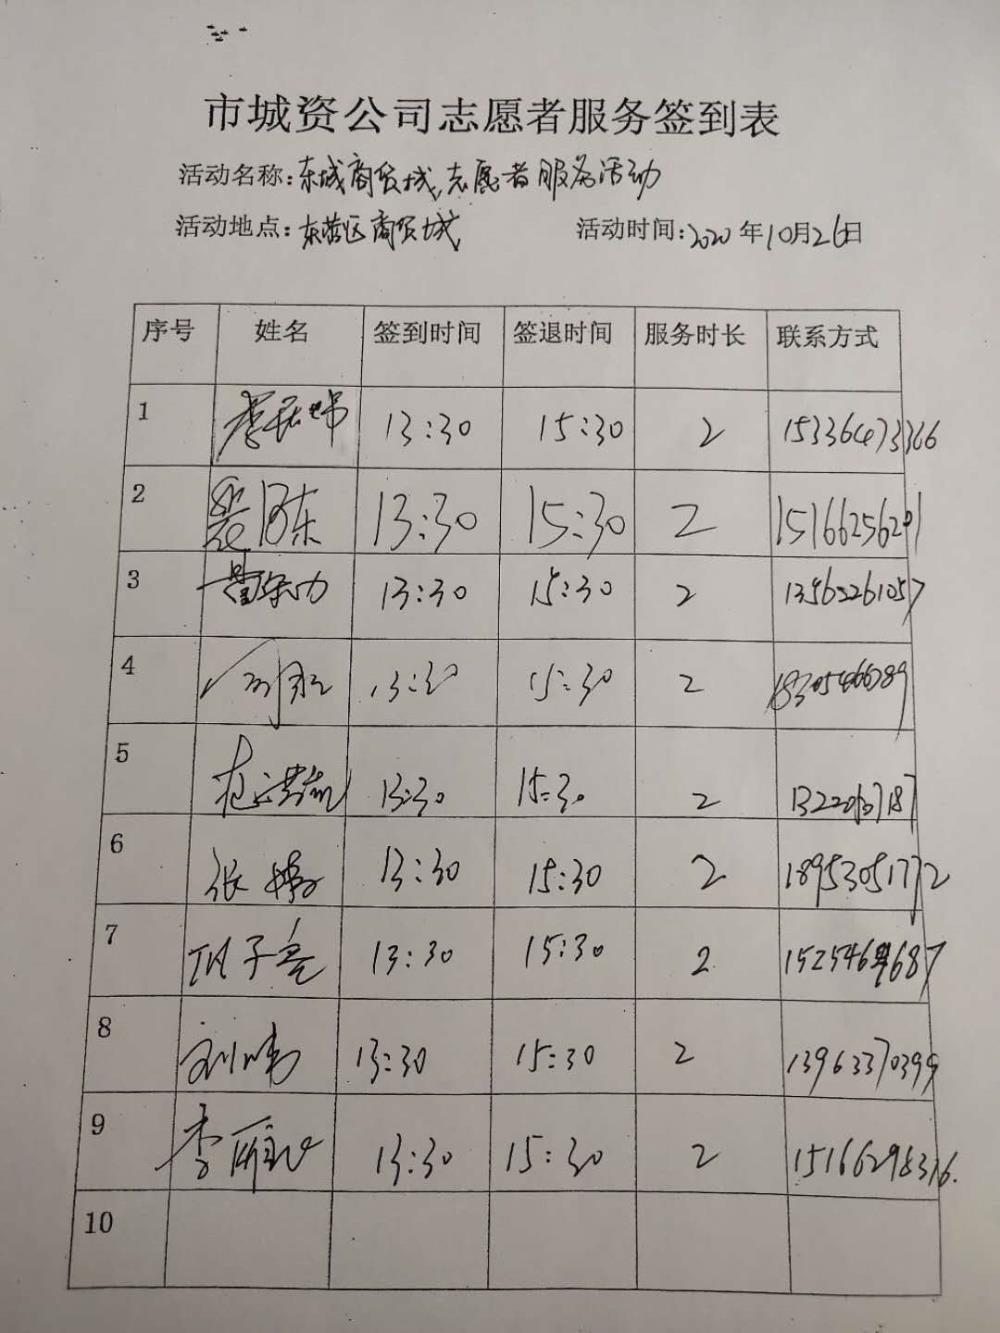 市城资公司志愿者服务签到表
活动名称:东城商贸城志愿者服务活动
活动地点:东营区商贸城 活动时间:2020年10月26日
序号 姓名 签到时间 签退时间 服务时长 联系方式
1 13:30 15:30 2 15336473366
2 13:30 15:30 2 15166256291
3 13:30 15:30 2
4 13:30 15:30 2
5 13:30 15:30 2
6 张婷 13:30 15:30 2 18953051772
7 子亮 13:30 15:30 2
8 刘 13:30 15:30 2 13963370399
9 李 13:30 15:30 2 15166298316.
10